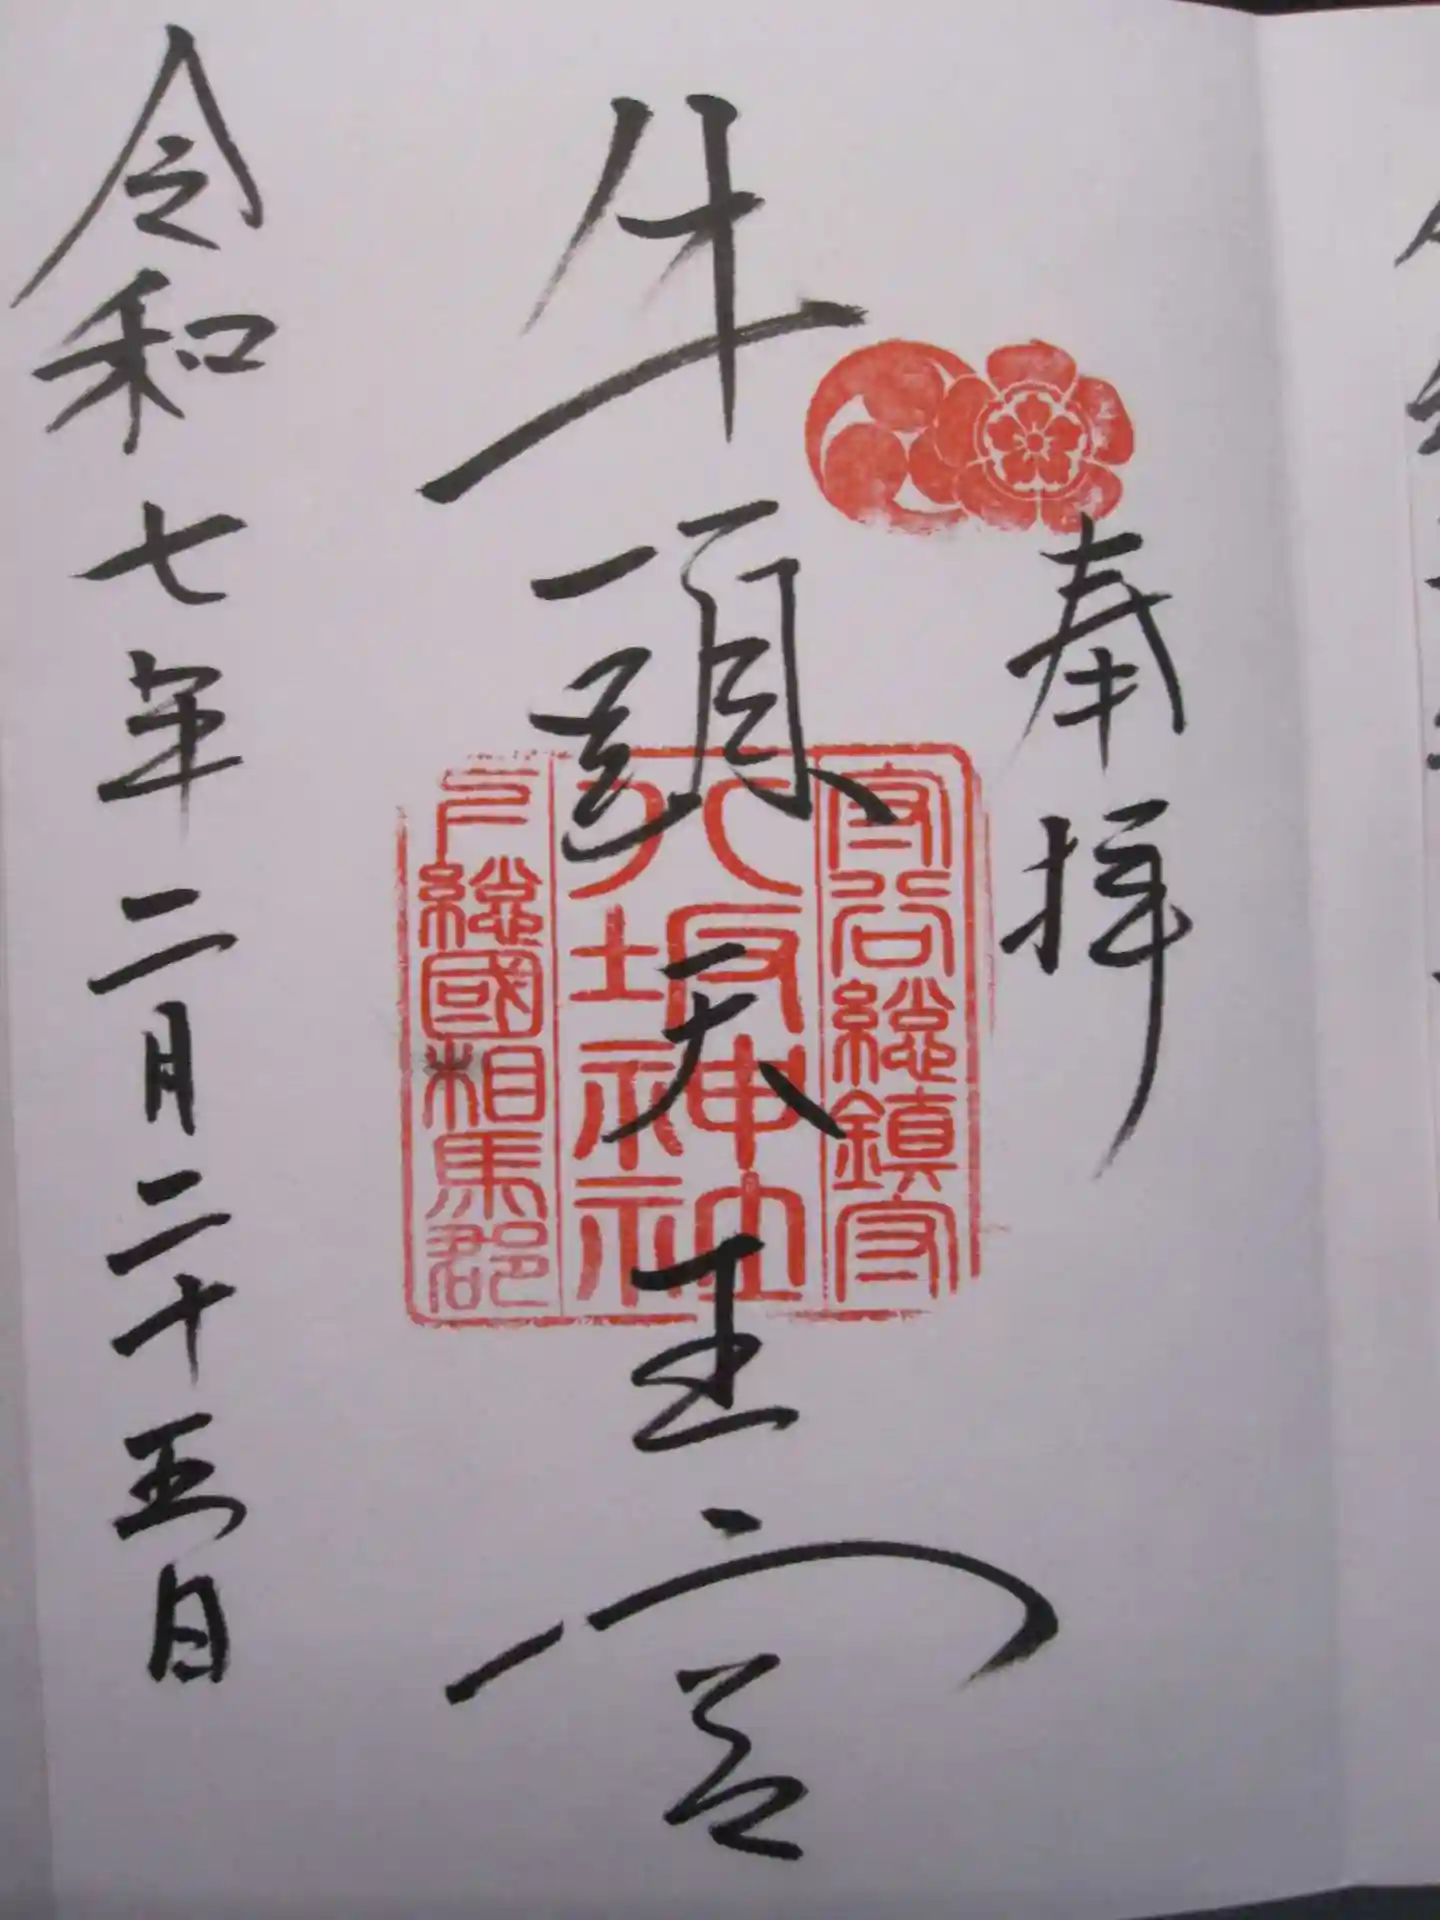 奉拝
守谷總鎮守
牛頭天王宮
八坂神社
下總國相馬郡
令和七年二月二十五日